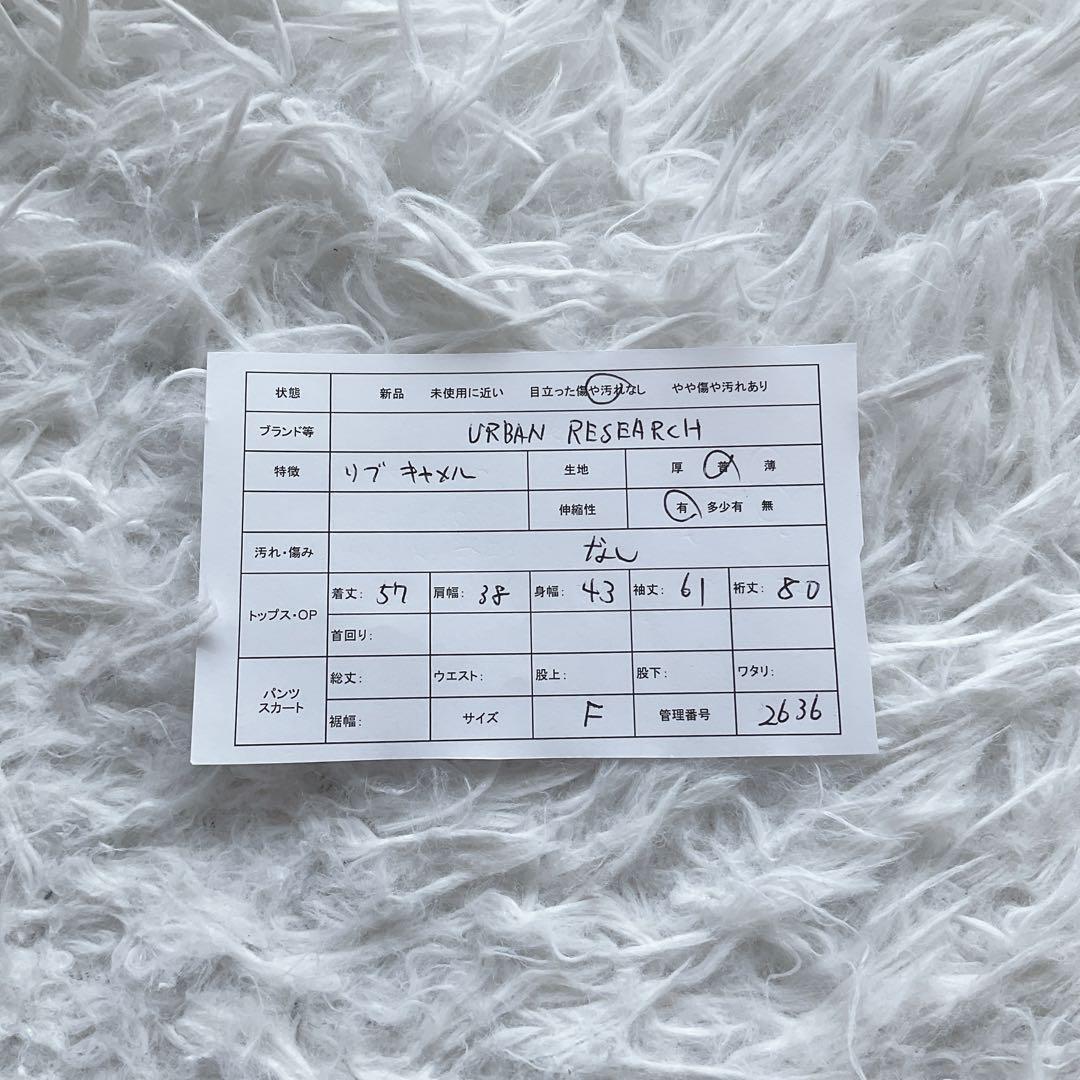 状態 新品 未使用に近い 目立った傷や汚れなし やや傷や汚れあり
ブランド等 URBAN RESEARCH
特徴 リブ キャメル 生地 厚 普 薄
伸縮性 有 多少有 無
汚れ・傷み なし
トップス・OP 着丈: 57 肩幅: 38 身幅: 43 袖丈: 61 裄丈: 80
首回り:
パンツ スカート 総丈: ウエスト: 股上: 股下: ワタリ:
裾幅: サイズ F 管理番号 2636